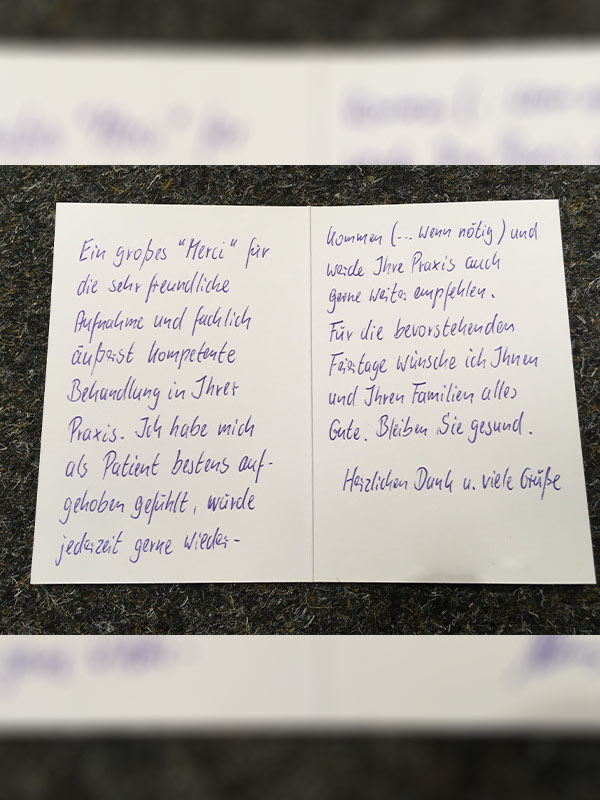 Ein großes "Merci" für
die sehr freundliche
Aufnahme und fachlich
äußerst kompetente
Behandlung in Ihrer
Praxis. Ich habe mich
als Patient bestens auf-
gehoben gefühlt, würde
jederzeit gerne wieder-
kommen (... wenn nötig) und
werde Ihre Praxis auch
gerne weiter empfehlen.
Für die bevorstehenden
Feiertage wünsche ich Ihnen
und Ihren Familien alles
Gute. Bleiben Sie gesund.
Herzlichen Dank u. viele Grüße